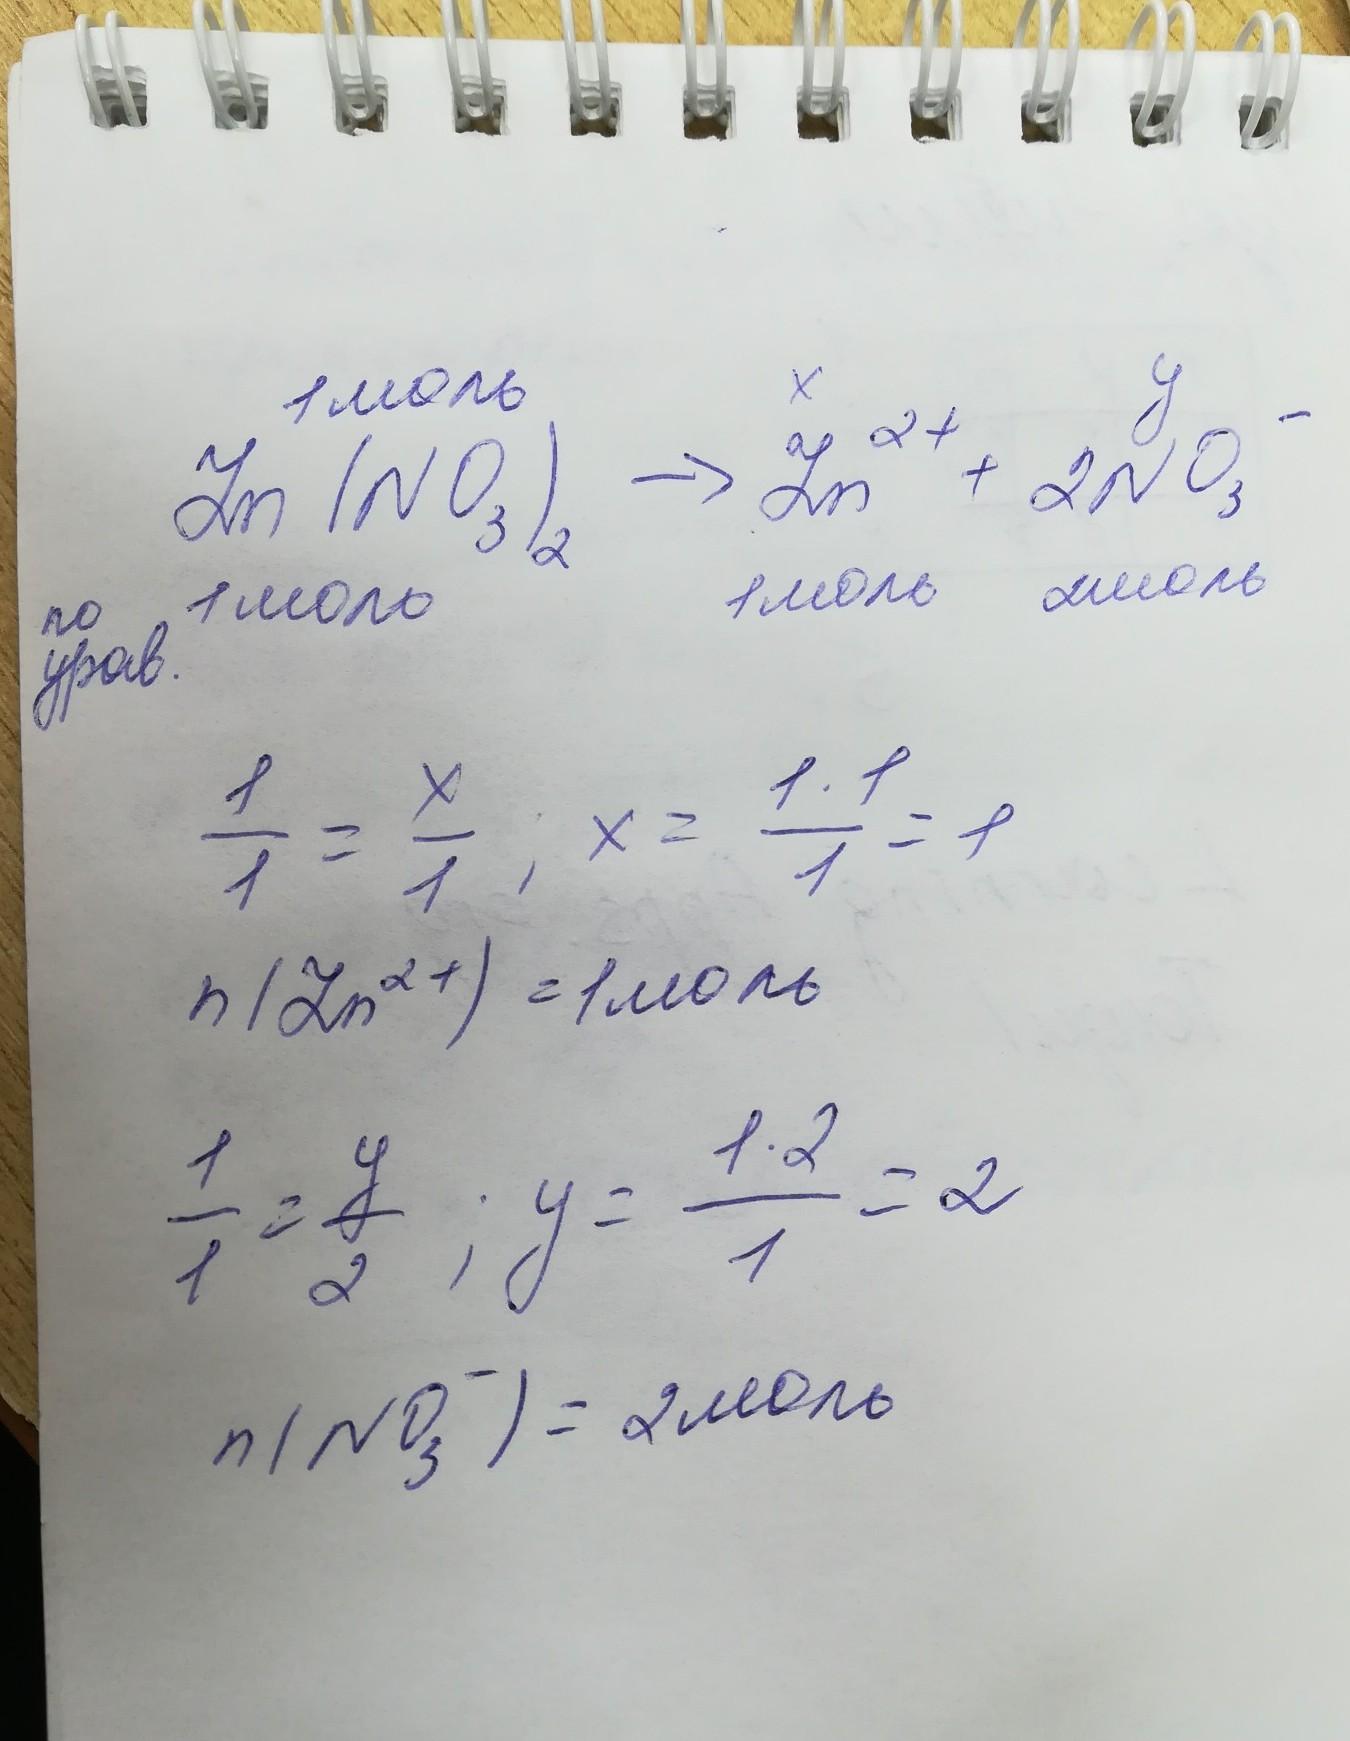 1моль x y
Zn(NO₃)₂ → Zn²⁺ + 2NO₃⁻
по урав. 1моль 1моль 2моль
1/1 = x/1 ; x = 1·1/1 = 1
n(Zn²⁺) = 1моль
1/1 = y/2 ; y = 1·2/1 = 2
n(NO₃⁻) = 2моль